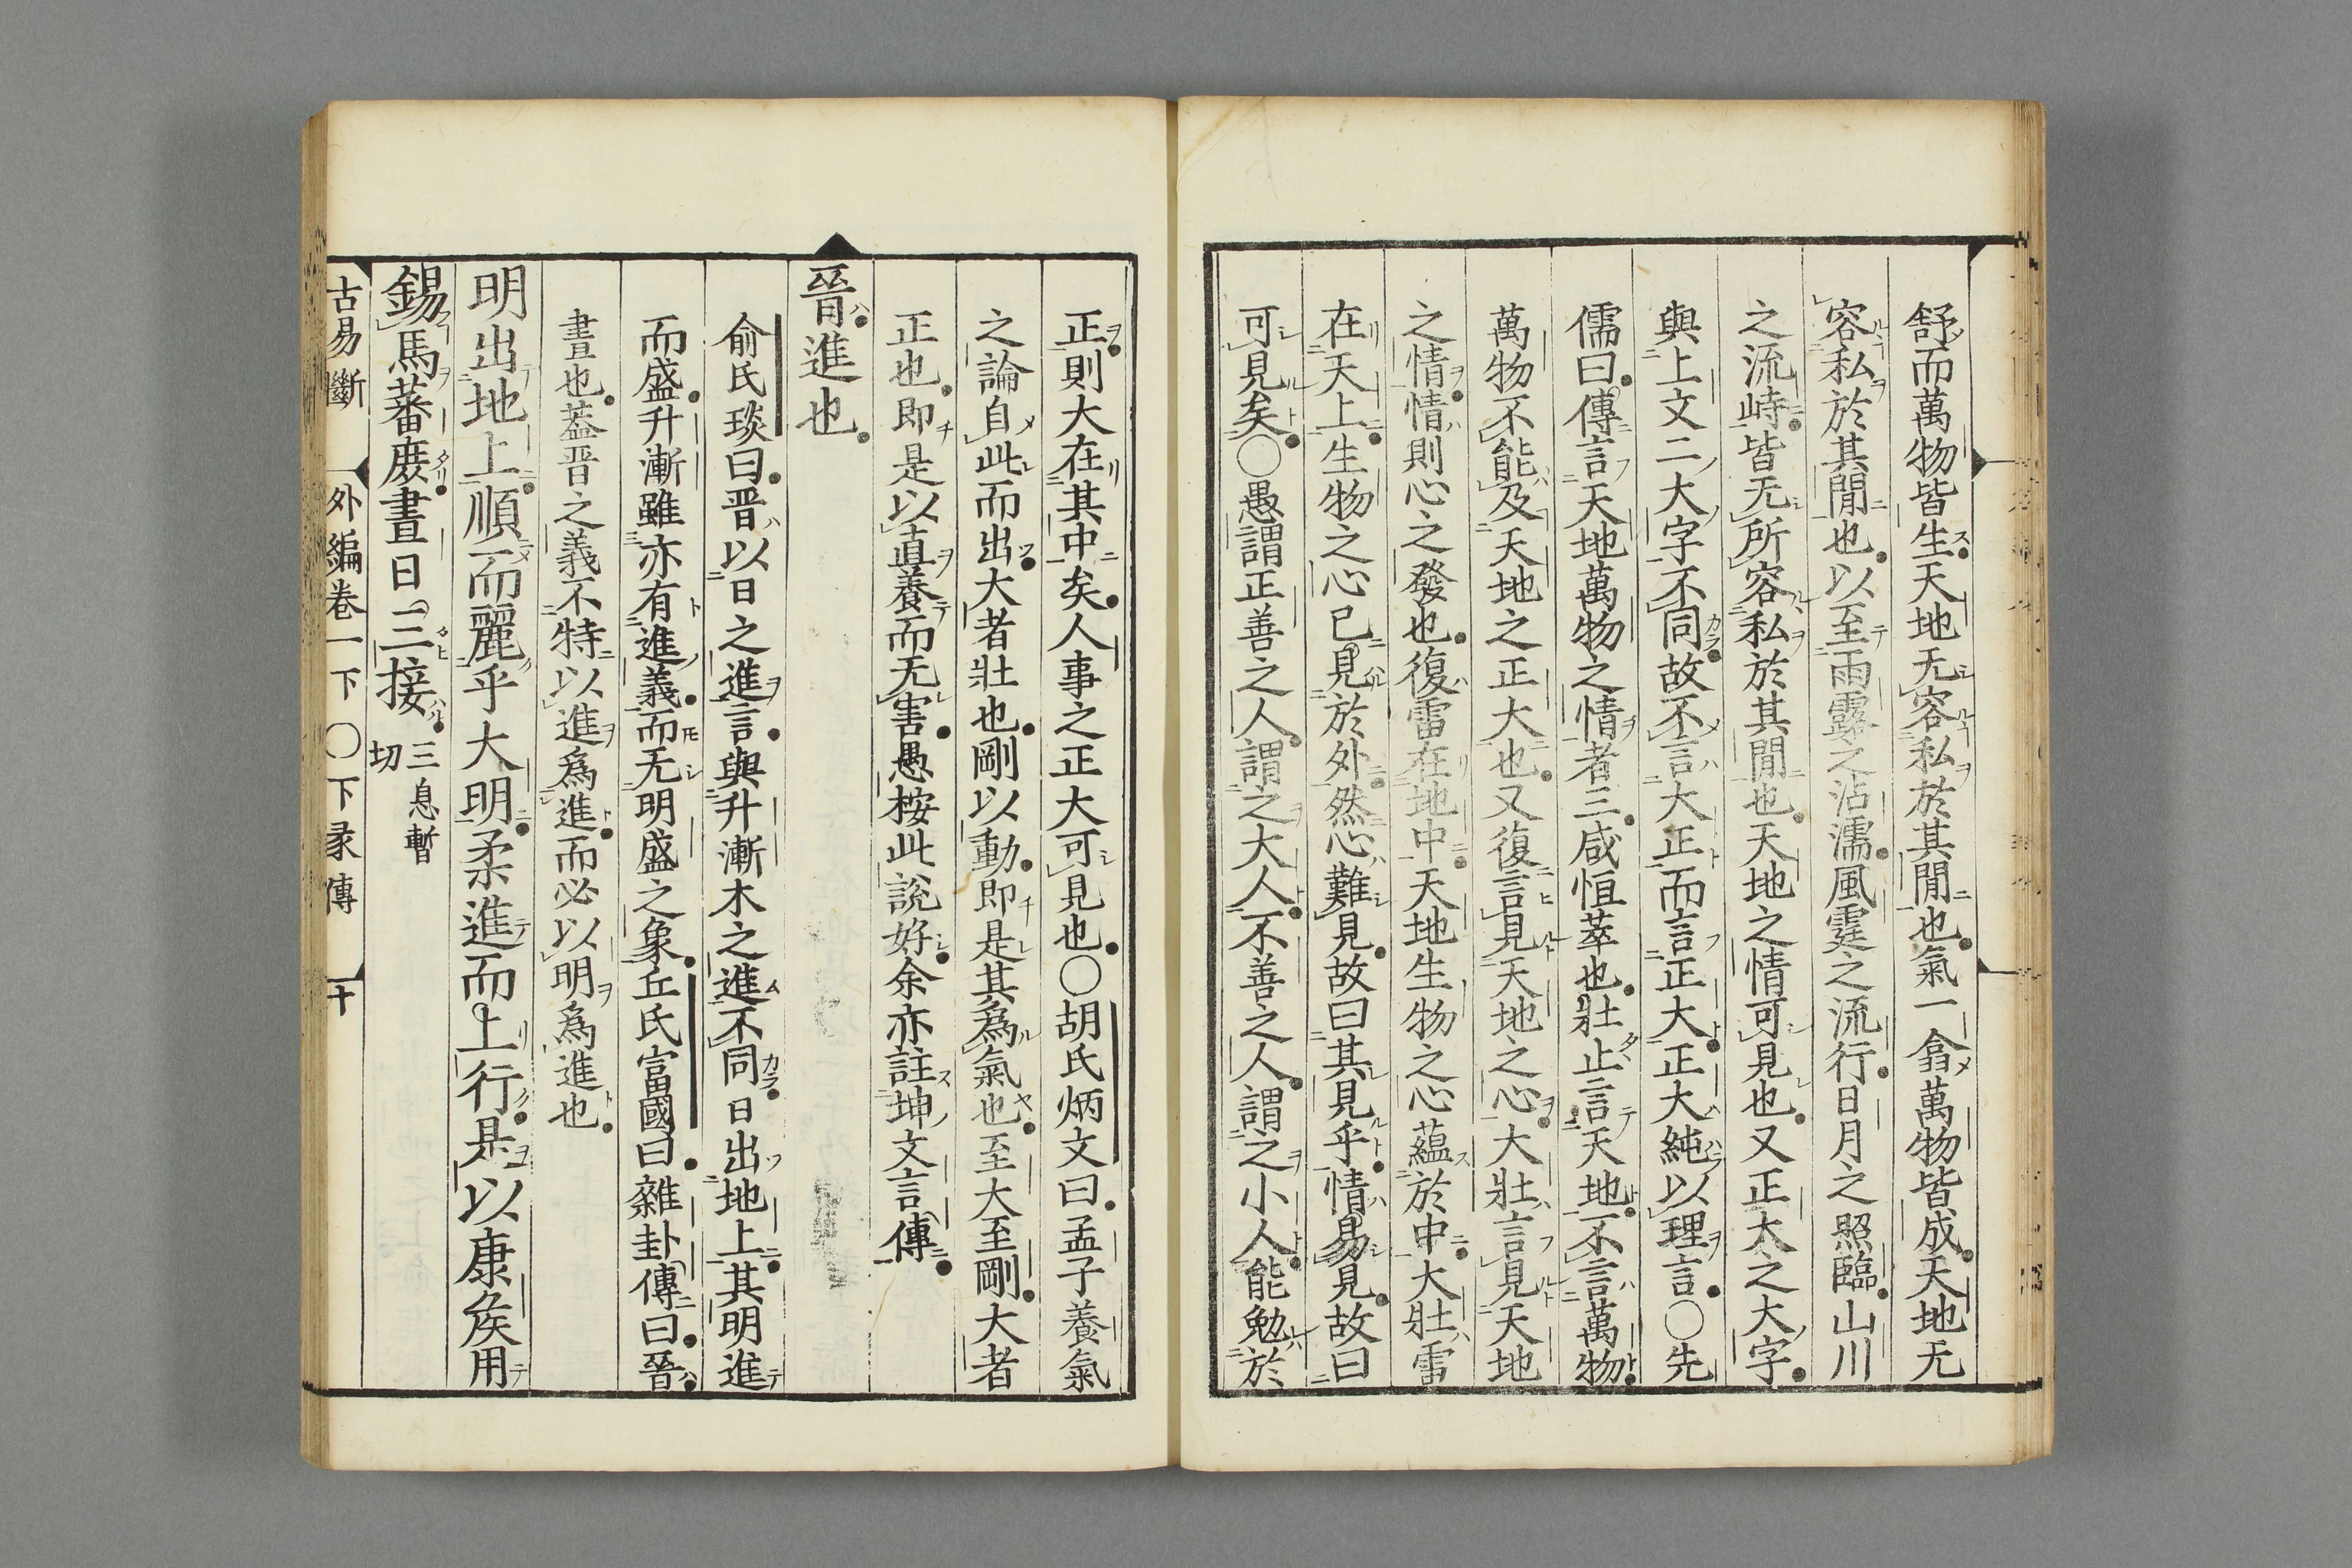 舒而萬物皆生天地无容私於其閒也氣一翕萬物皆成天地无
容私於其閒也以至雨露之沾濡風霆之流行日月之照臨山川
之流峙皆无所容私於其閒也天地之情可見也又正大之大字
與上文二大字不同故不言大正而言正大正大純以理言○先
儒曰傳言天地萬物之情者三咸恒萃也壯止言天地不言萬物
萬物不能及天地之正大也又復言見天地之心大壯言見天地
之情情則心之發也復雷在地中天地生物之心蘊於中大壯雷
在天上生物之心已見於外然心難見故曰其見乎情易見故曰
可見矣○愚謂正善之人謂之大人不善之人謂之小人能勉於
正則大在其中矣人事之正大可見也○胡氏炳文曰孟子養氣
之論自此而出大者壯也剛以動即是其為氣也至大至剛大者
正也即是以直養而无害愚桉此說好余亦註坤文言傳
晉進也
俞氏琰曰晋以日之進言與升漸木之進不同日出地上其明進
而盛升漸雖亦有進義而无明盛之象丘氏富國曰雜卦傳曰晉
晝也蓋晋之義不特以進為進而必以明為進也
明出地上順而麗乎大明柔進而上行是以康矦用
錫馬蕃庻晝日三接三息暫切
古易斷 外編卷一下 ○下彖傳 十